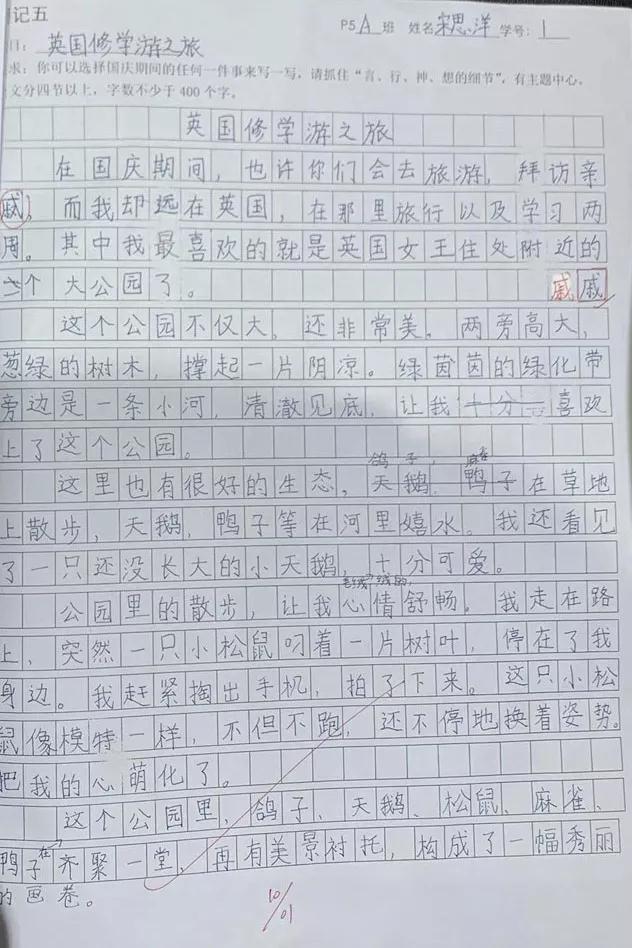 记五
P5A班 姓名 宋思洋 学号：1
目：英国修学游之旅
求：你可以选择国庆期间的任何一件事来写一写，请抓住“言、行、神、想的细节”，有主题中心。
文分四节以上，字数不少于400个字。
英国修学游之旅
在国庆期间，也许你们会去旅游，拜访亲
戚，而我却远在英国，在那里旅行以及学习两
周。其中我最喜欢的就是英国女王住处附近的
个大公园了。 戚戚
这个公园不仅大，还非常美。两旁高大，
葱绿的树木，撑起一片阴凉。绿茵茵的绿化带
旁边是一条小河，清澈见底，让我十分喜欢
上了这个公园。
鸽子，麻雀
这里也有很好的生态，天鹅，鸭子在草地
上散步，天鹅，鸭子等在河里嬉水。我还看见
了一只还没长大的小天鹅，十分可爱。
公园里的散步，让我心情舒畅。我走在路
上，突然一只小松鼠叼着一片树叶，停在了我
身边。我赶紧掏出手机，拍了下来。这只小松
鼠像模特一样，不但不跑，还不停地换着姿势。
把我的心萌化了。
这个公园里，鸽子、天鹅、松鼠、麻雀、
鸭子在齐聚一堂，再有美景衬托，构成了一幅秀丽
的画卷。
10/01